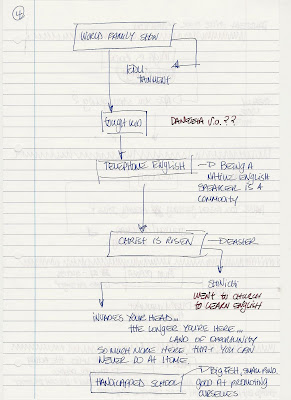 4
WORLD FAMILY SHOW
EDU
TAINMENT
DANEEHA V.O.??
TELEPHONE ENGLISH → BEING A
NATIVE ENGLISH
SPEAKER IS A
COMMODITY
CHRIST IS RISEN → EASIER
WENT TO CHURCH
TO LEARN ENGLISH
INVADES YOUR HEAD...
THE LONGER YOU'RE HERE...
LAND OF OPPORTUNITY
SO MUCH MORE HERE, THAT YOU CAN
NEVER DO AT HOME.
HANDICAPPED SCHOOL → BIG FISH, SMALL POND.
GOOD AT PROMOTING
OURSELVES